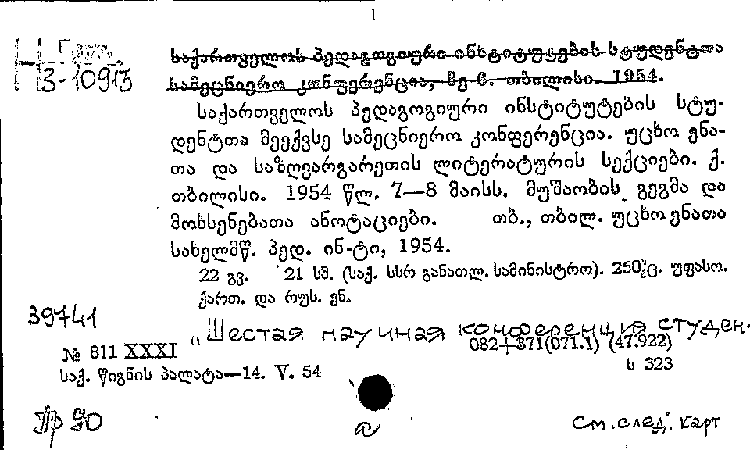 Н
3-10913
საქართველოს პედაგოგიური ინსტიტუტების სტუდენტთა
სამეცნიერო კონფერენცია, მე-6. თბილისი. 1954.
საქართველოს პედაგოგიური ინსტიტუტების სტუ-
დენტთა მეექვსე სამეცნიერო კონფერენცია. უცხო ენა-
თა და საზღვარგარეთის ლიტერატურის სექციები. ქ.
თბილისი. 1954 წლ. 7—8 მაისს. მუშაობის გეგმა და
მოხსენებათა ანოტაციები. თბ., თბილ. უცხო ენათა
სახელმწ. პედ. ინ-ტი, 1954.
22 გვ. 21 სმ. (საქ. სსრ განათლ. სამინისტრო). 250 ც. უფასო.
ქართ. და რუს. ენ.
39741
"Шестая научная конференция студен.
№ 811 XXXI
082+371(071.1) (47.922)
საქ. წიგნის პალატა—14. V. 54
ს 323
Пр 90
см. след. карт